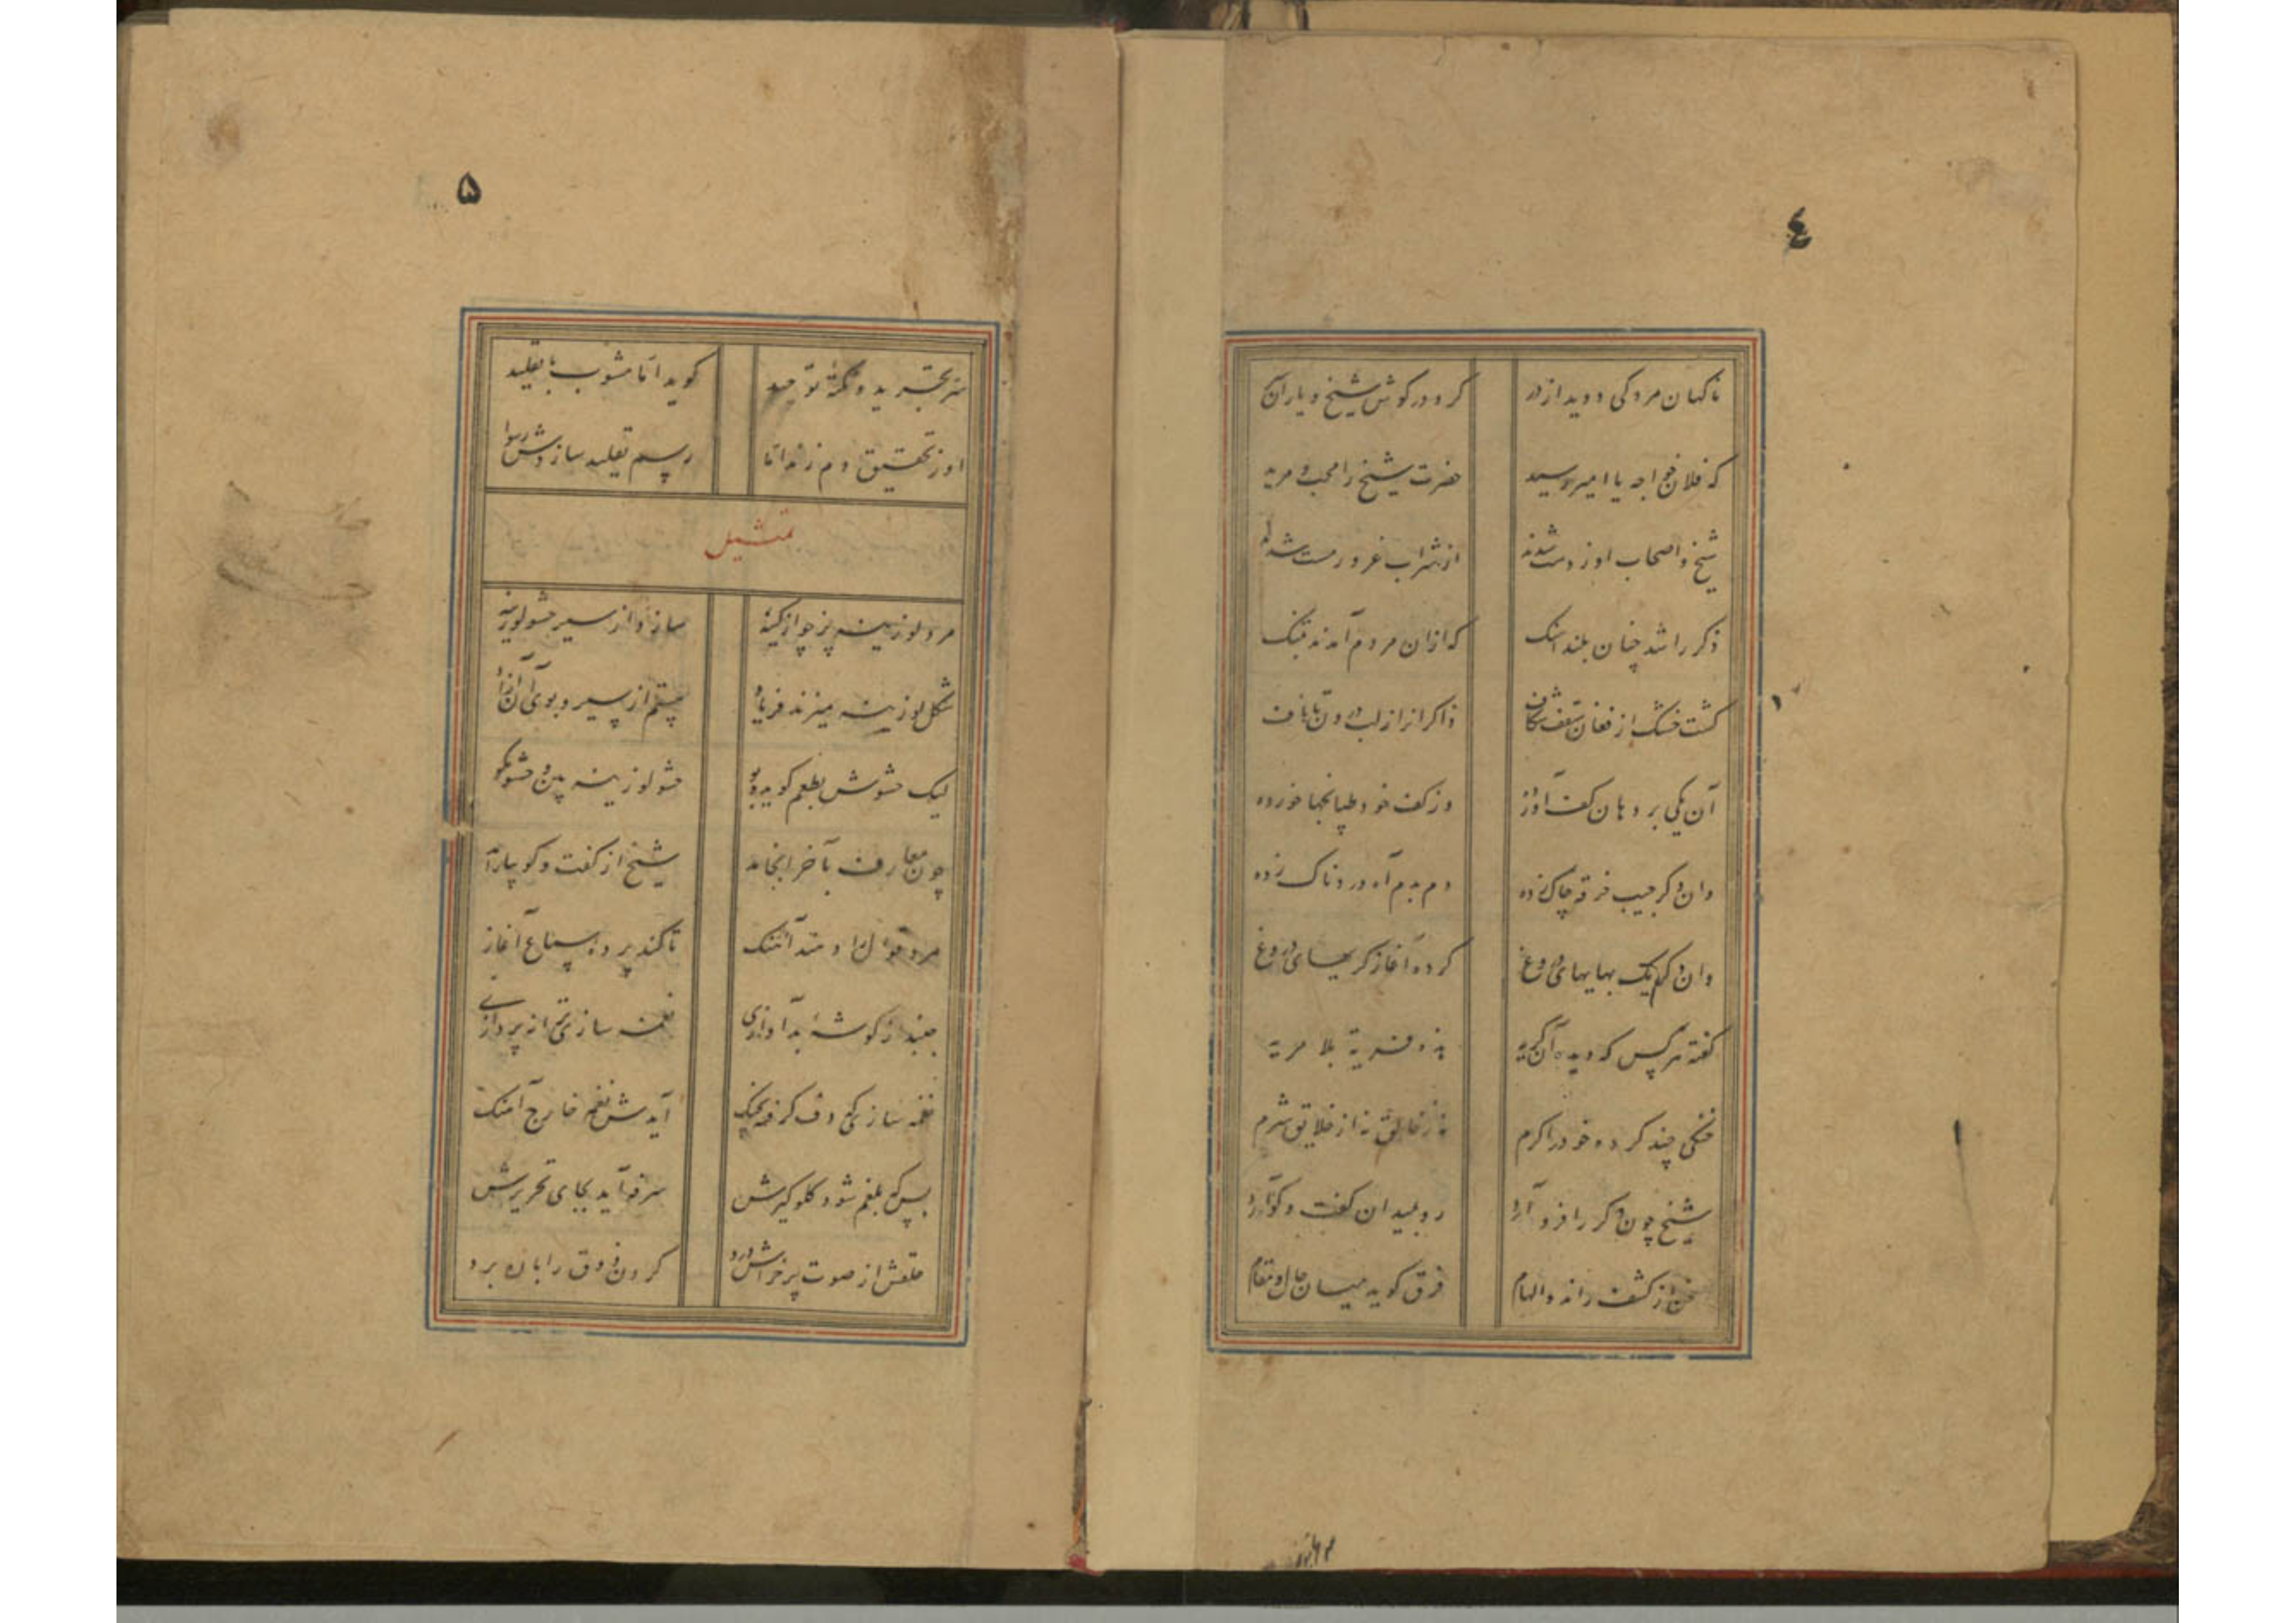 ٤
ناکهان مردکی دوید از در
کرد در کوش شیخ و یاران
که فلان خواجه یا امیر رسید
حضرت شیخ را محب و مرید
شیخ و اصحاب او ز دست شدند
از شراب غرور مست شدند
ذکر را شد چنان بلند آهنک
که ازان مردم آمدند بتنک
کشت خشک از فغان سقف شکاف
ذاکرانرا ز لب درون تا ناف
آن یکی بر دهان کف آورده
وز کف خود طپانچها خورده
وان دکر جیب خرقه چاک زده
دم بدم آه دردناک زده
وان دکر یک بهایهای دروغ
کرده آغاز کریهای دروغ
کفته هر کس که دیده آن کریه
هذه فریة بلا مریه
خنکی چند کرده خود را کرم
نه ز خالق نه از خلایق شرم
شیخ چون ذکر را فرو آرد
رو بمیدان کفت و کو آرد
سخن از کشف راند و الهام
فرق کوید میان حال و مقام
۵
سر تجرید و نکتهٔ توحید
کوید اما مشوب با تقلید
او ز تحقیق دم زند اما
رسم تقلید سازدش رسوا
تمثیل
مرد لوزینه پز چو از کینه
سازد از سیر حشو لوزینه
شکل لوزینه میزند فریاد
لیک حشوش بطعم کوید و بو
حشو لوزینه بین و حشو مکو
چون معارف بآخر انجامد
شیخ از کفت و کو بیارامد
مرد قوال را دهد آهنک
تا کند پرده سماع آغاز
جهد از کوشهٔ بد آوازی
نغمه سازی ترانه پردازی
نغمه سازی که دف کرفته بچنک
آیدش نغمه خارج آهنک
بس که بلغم شود کلو کیرش
سرفه آید بجای تحریرش
حلقش از صوت پر خراش و درد
کردن ذوق را بان برد